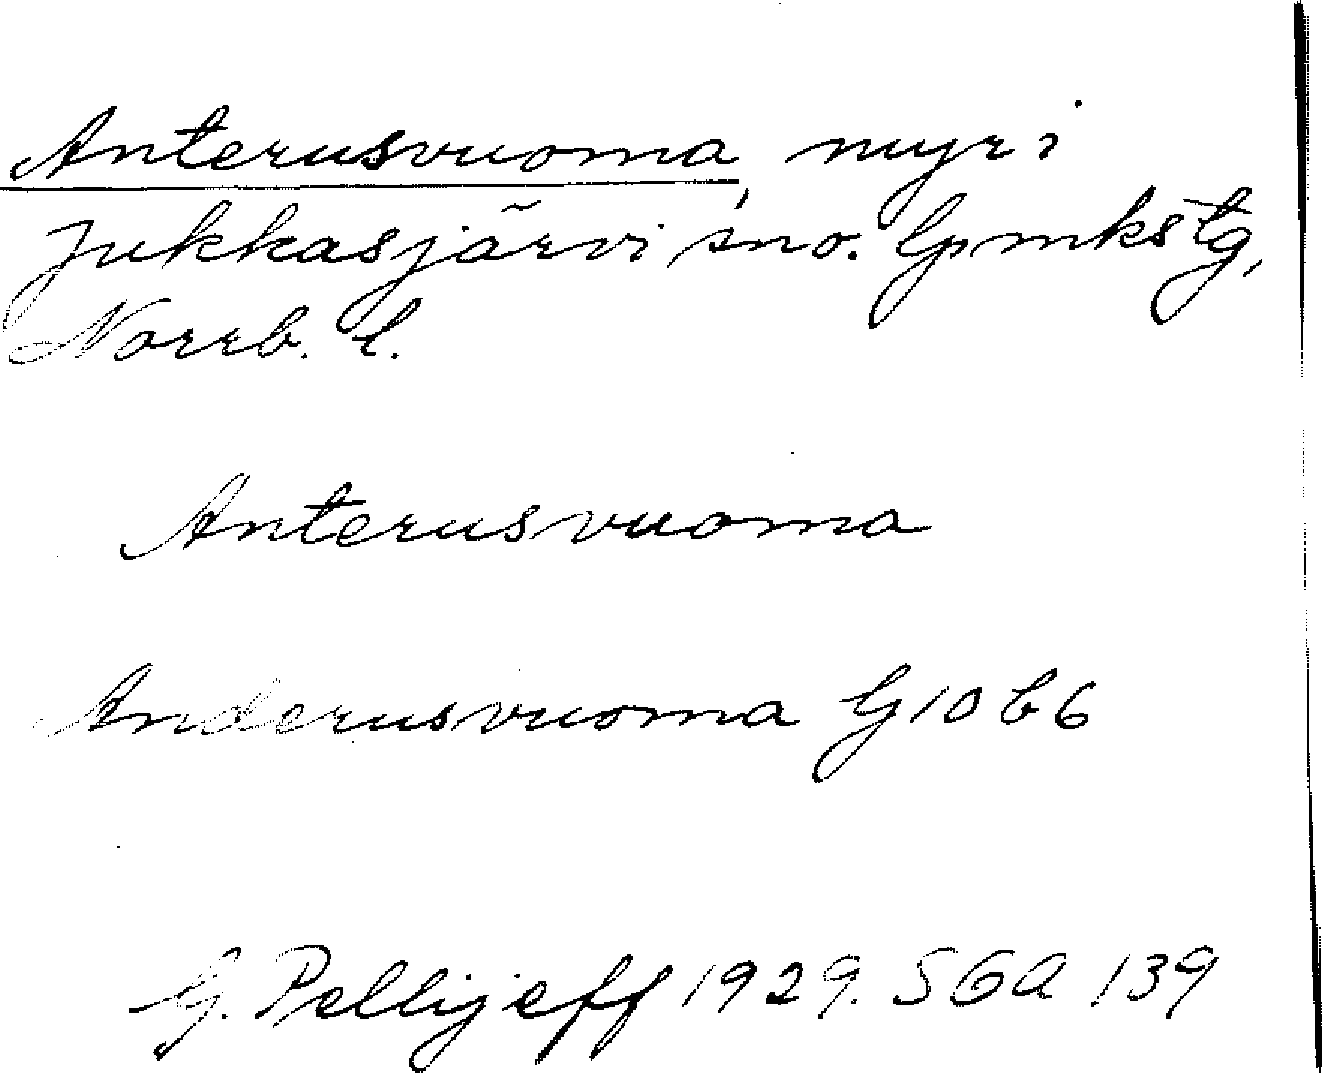 Anterusvuoma, myr i
Jukkasjärvi sno. Gpmkstg,
Norrb. l.
Anterusvuoma
Anderusvuoma G 10 b 6
G. Pellijeff 1929. SGA 139